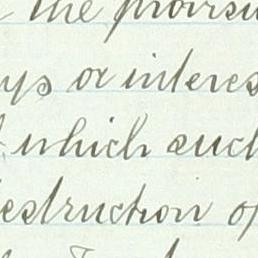 the provisi
ys or interes
which such
estruction of